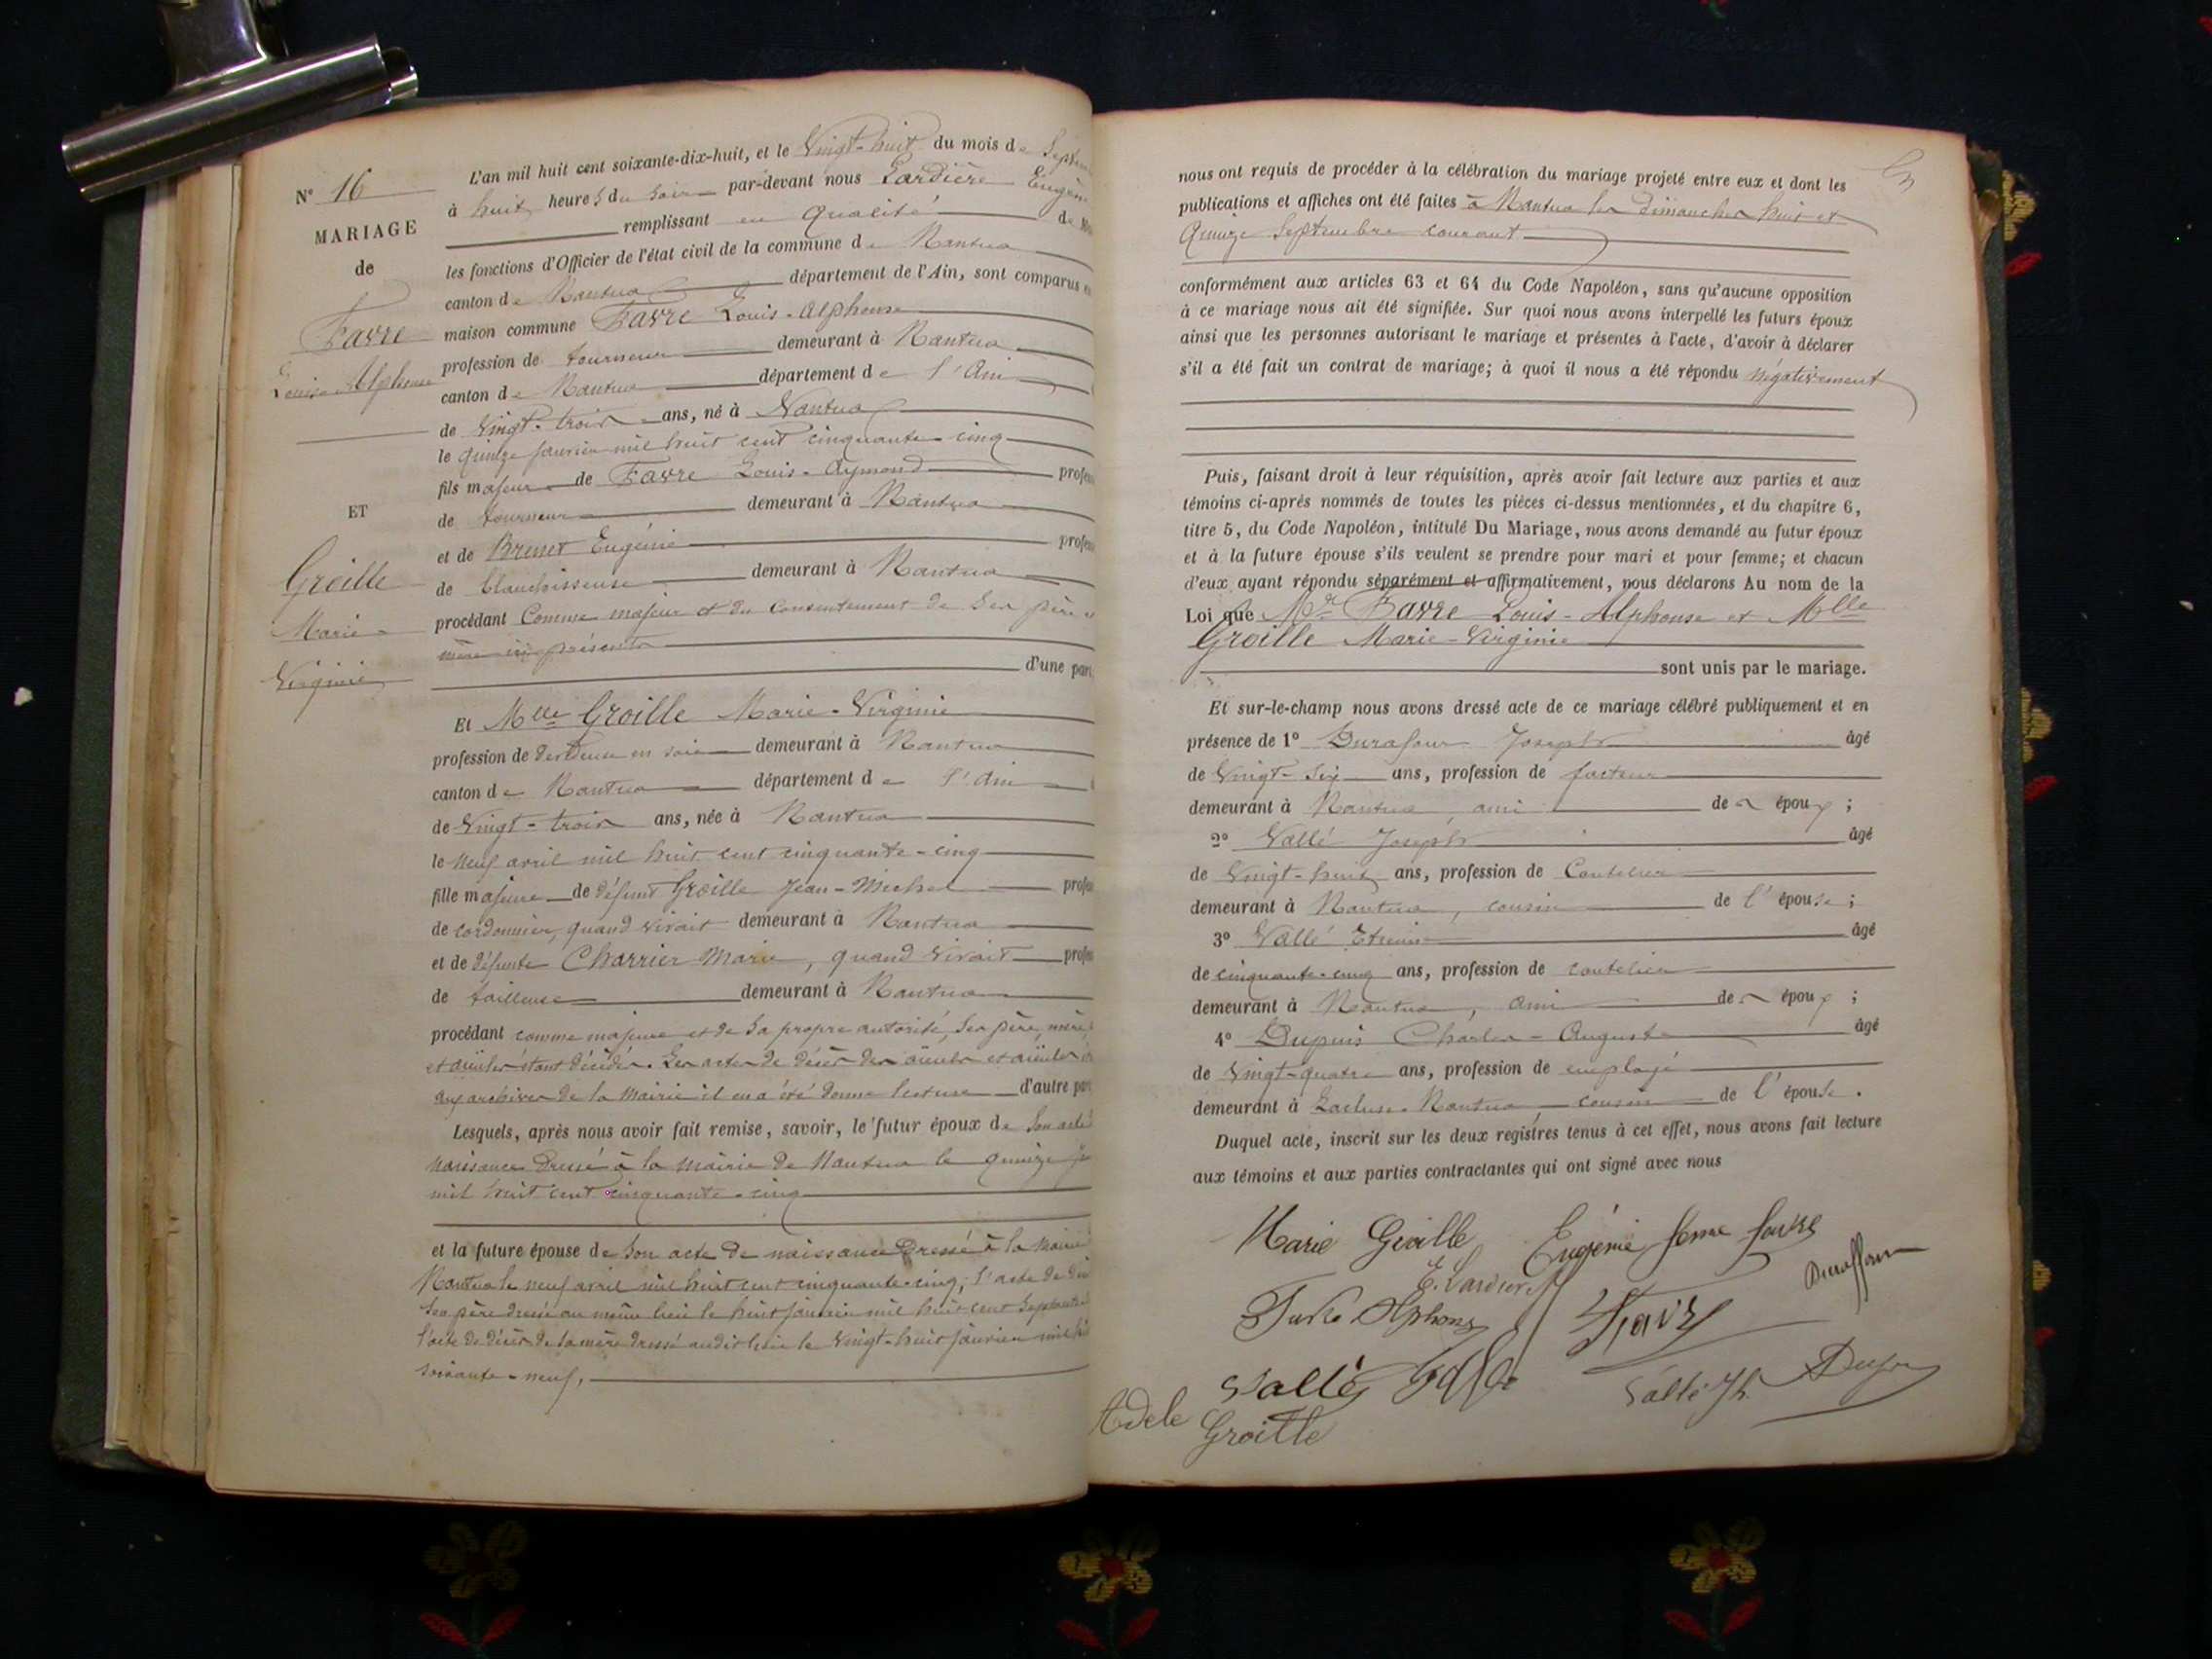 N° 16
MARIAGE
de
Favre
Louis-Alphonse
ET
Groille
Marie
Virginie
L'an mil huit cent soixante-dix-huit, et le Vingt-huit du mois de Septem
à huit heures du soir par-devant nous Lardière Eugène
remplissant en qualité de
les fonctions d'Officier de l'état civil de la commune de Nantua
canton de Nantua département de l'Ain, sont comparus en
maison commune Favre Louis-Alphonse
profession de tourneur demeurant à Nantua
canton de Nantua département de l'Ain
de Vingt-trois ans, né à Nantua
le quinze janvier mil huit cent cinquante-cinq
fils majeur de Favre Louis-Aymond profes
de tourneur demeurant à Nantua
et de Brunet Eugénie profes
de blanchisseuse demeurant à Nantua
procédant Comme majeur et du consentement de ses père et
mère ici présents
d'une part,
Et Mlle Groille Marie-Virginie
profession de dévideuse en soie demeurant à Nantua
canton de Nantua département de l'Ain
de Vingt-trois ans, née à Nantua
le neuf avril mil huit cent cinquante-cinq
fille majeure de défunt Groille Jean-Michel profes
de cordonnier, quand vivait demeurant à Nantua
et de défunte Charrier Marie, quand vivait profes
de tailleuse demeurant à Nantua
procédant comme majeure et de sa propre autorité, ses père, mère,
et aïeules étant décédés. Les actes de décès des aïeuls et aïeules
aux archives de la Mairie il en a été donné lecture d'autre part
Lesquels, après nous avoir fait remise, savoir, le futur époux de Son acte
naissance Dressé à la Mairie de Nantua le quinze ja
mil huit cent cinquante-cinq
et la future épouse de Son acte de naissance Dressé à la Mairie
Nantua le neuf avril mil huit cent cinquante-cinq, l'acte de dé
Ses père dressé au même lieu le huit janvier mil huit cent Septante
l'acte de décès de sa mère dressé audit lieu le Vingt-huit janvier mil hui
soixante-neuf.
nous ont requis de procéder à la célébration du mariage projeté entre eux et dont les
publications et affiches ont été faites à Nantua les dimanches huit et
Quinze Septembre courant
conformément aux articles 63 et 64 du Code Napoléon, sans qu'aucune opposition
à ce mariage nous ait été signifiée. Sur quoi nous avons interpellé les futurs époux
ainsi que les personnes autorisant le mariage et présentes à l'acte, d'avoir à déclarer
s'il a été fait un contrat de mariage; à quoi il nous a été répondu négativement
Puis, faisant droit à leur réquisition, après avoir fait lecture aux parties et aux
témoins ci-après nommés de toutes les pièces ci-dessus mentionnées, et du chapitre 6,
titre 5, du Code Napoléon, intitulé Du Mariage, nous avons demandé au futur époux
et à la future épouse s'ils veulent se prendre pour mari et pour femme; et chacun
d'eux ayant répondu séparément et affirmativement, nous déclarons Au nom de la
Loi que Mr Favre Louis-Alphonse et Mlle
Groille Marie-Virginie
sont unis par le mariage.
Et sur-le-champ nous avons dressé acte de ce mariage célébré publiquement et en
présence de 1° Durafour Joseph âgé
de Vingt-six ans, profession de facteur
demeurant à Nantua, ami de époux;
2° Vallé Joseph âgé
de Vingt-huit ans, profession de Coutelier
demeurant à Nantua, cousin de l'épouse;
3° Vallé Etienne âgé
de cinquante-cinq ans, profession de coutelier
demeurant à Nantua, ami de époux;
4° Dupuis Charles-Auguste âgé
de Vingt-quatre ans, profession de employé
demeurant à Nantua cousin de l'épouse.
Duquel acte, inscrit sur les deux registres tenus à cet effet, nous avons fait lecture
aux témoins et aux parties contractantes qui ont signé avec nous
Marie Groille Eugénie feme favre
E. Lardière Duraffour
Alphonse Favre
Vallé Vallé Jh
Adele Groille